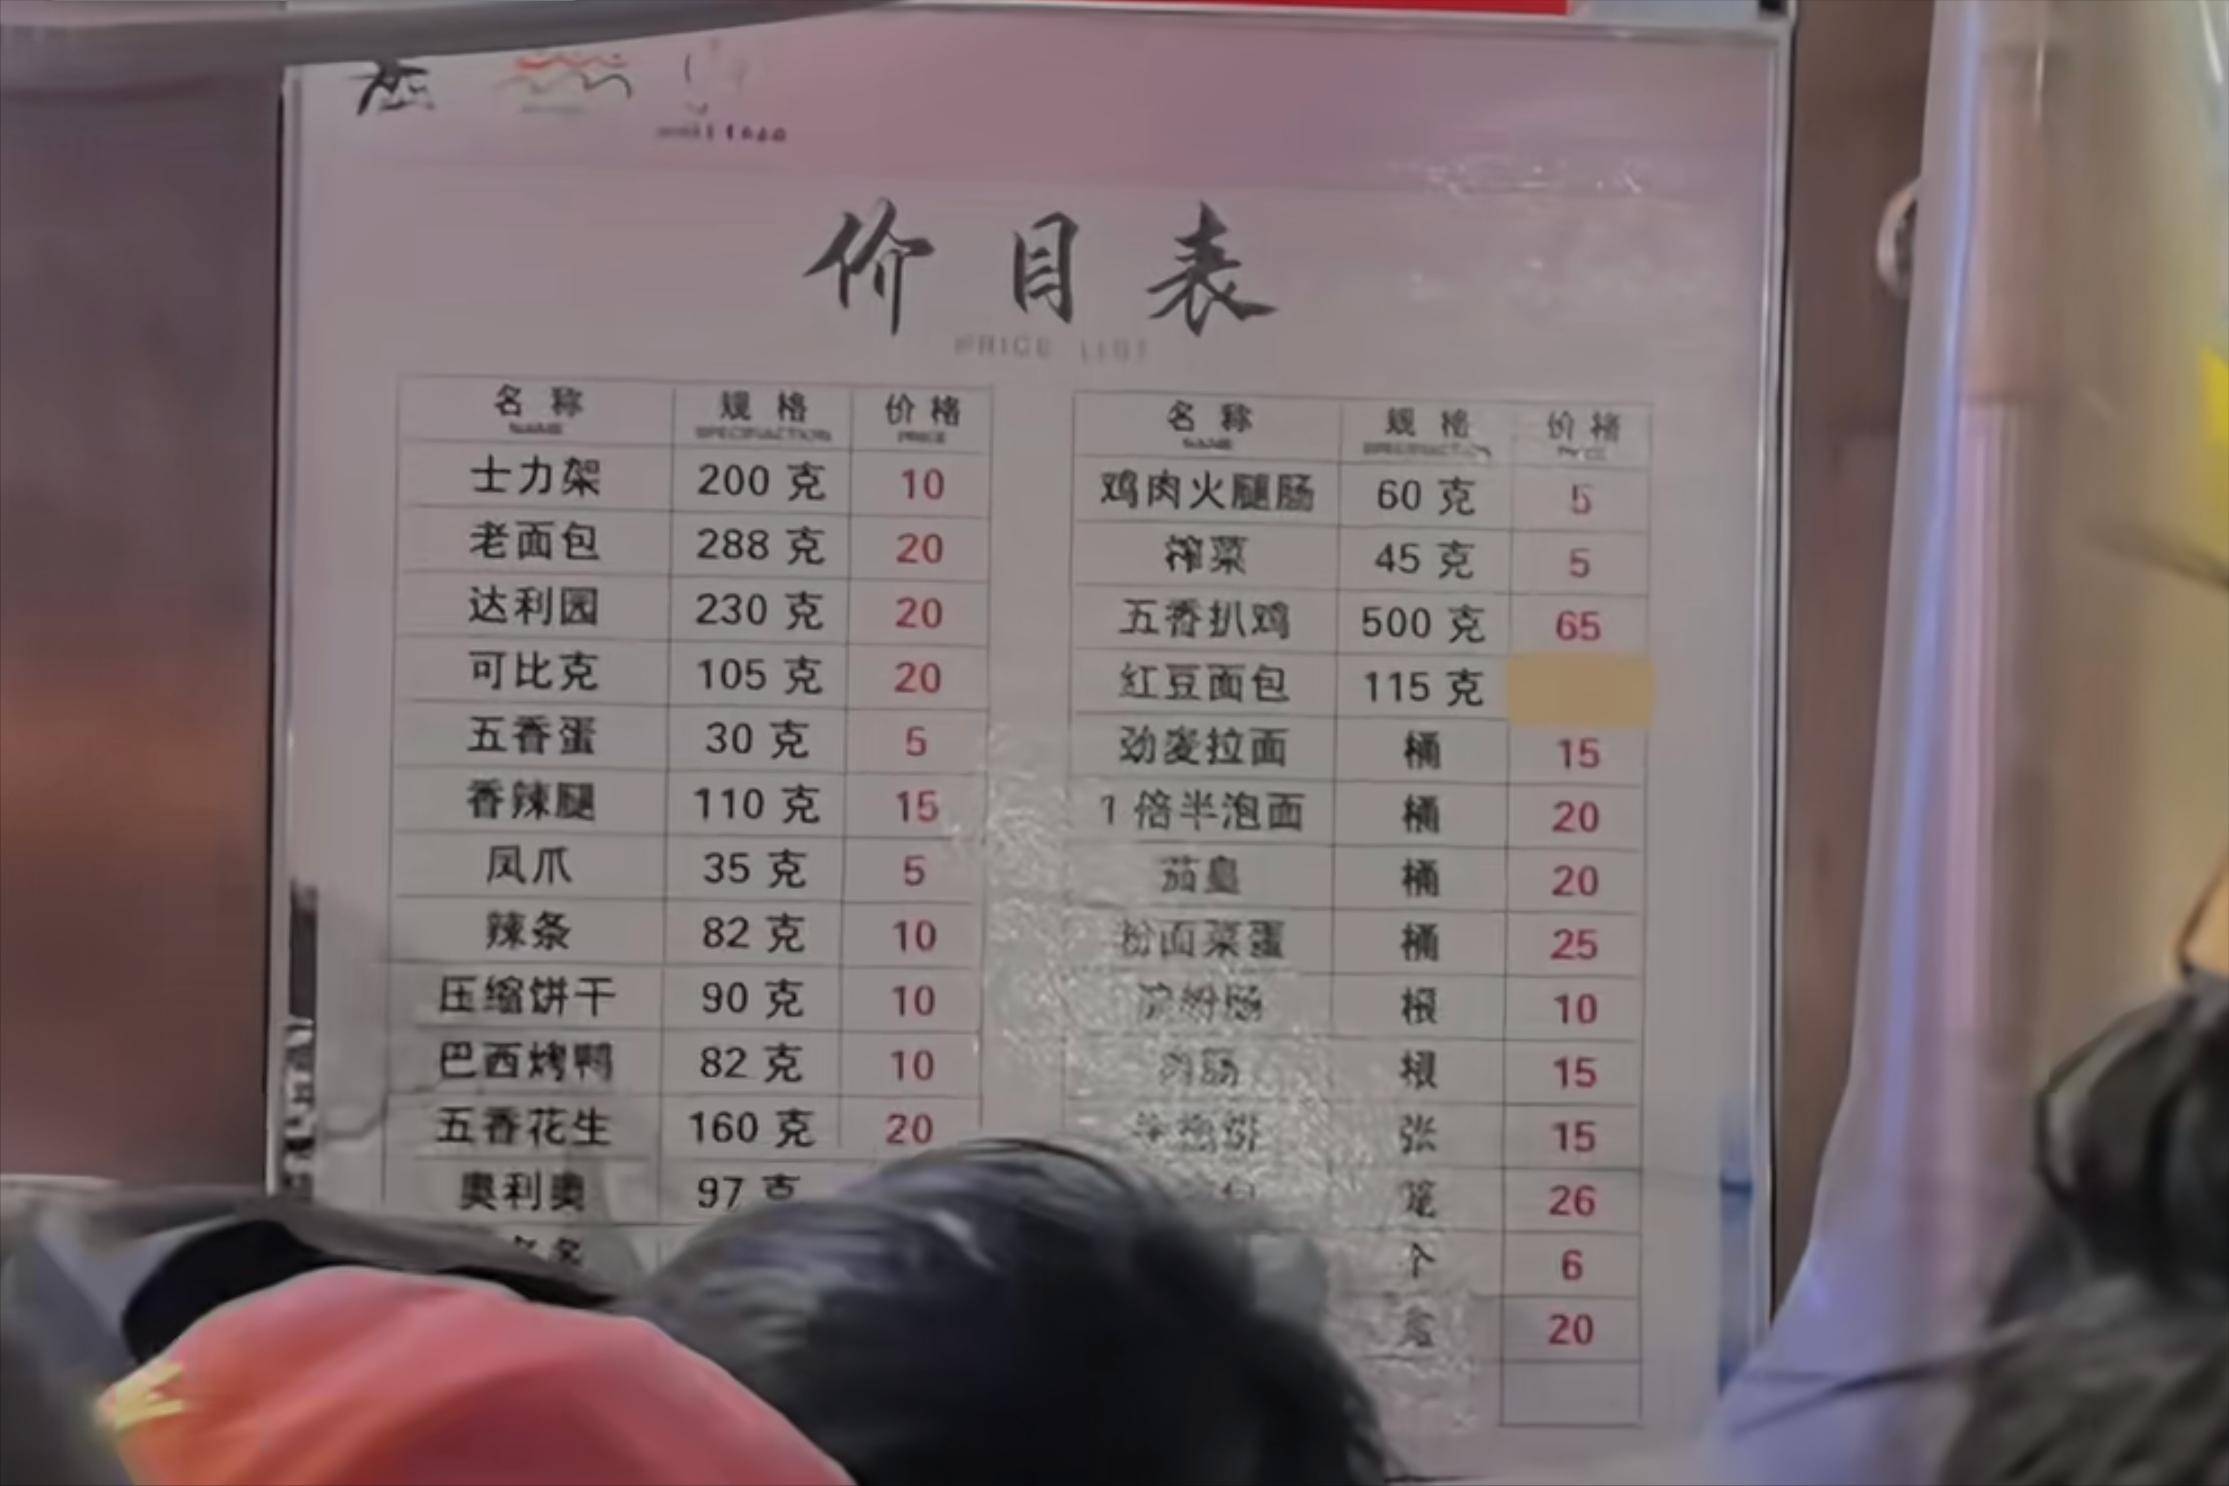 价目表
PRICE LIST
名称 规格 价格
NAME SPECIFIACTION PRICE
士力架 200克 10
老面包 288克 20
达利园 230克 20
可比克 105克 20
五香蛋 30克 5
香辣腿 110克 15
凤爪 35克 5
辣条 82克 10
压缩饼干 90克 10
巴西烤鸭 82克 10
五香花生 160克 20
奥利奥 97克
名称 规格 价格
NAME SPECIFIACTION PRICE
鸡肉火腿肠 60克 5
榨菜 45克 5
五香扒鸡 500克 65
红豆面包 115克
劲麦拉面 桶 15
1倍半泡面 桶 20
茄皇 桶 20
粉面菜蛋 桶 25
淀粉肠 根 10
肉肠 根 15
张 15
笼 26
个 6
20